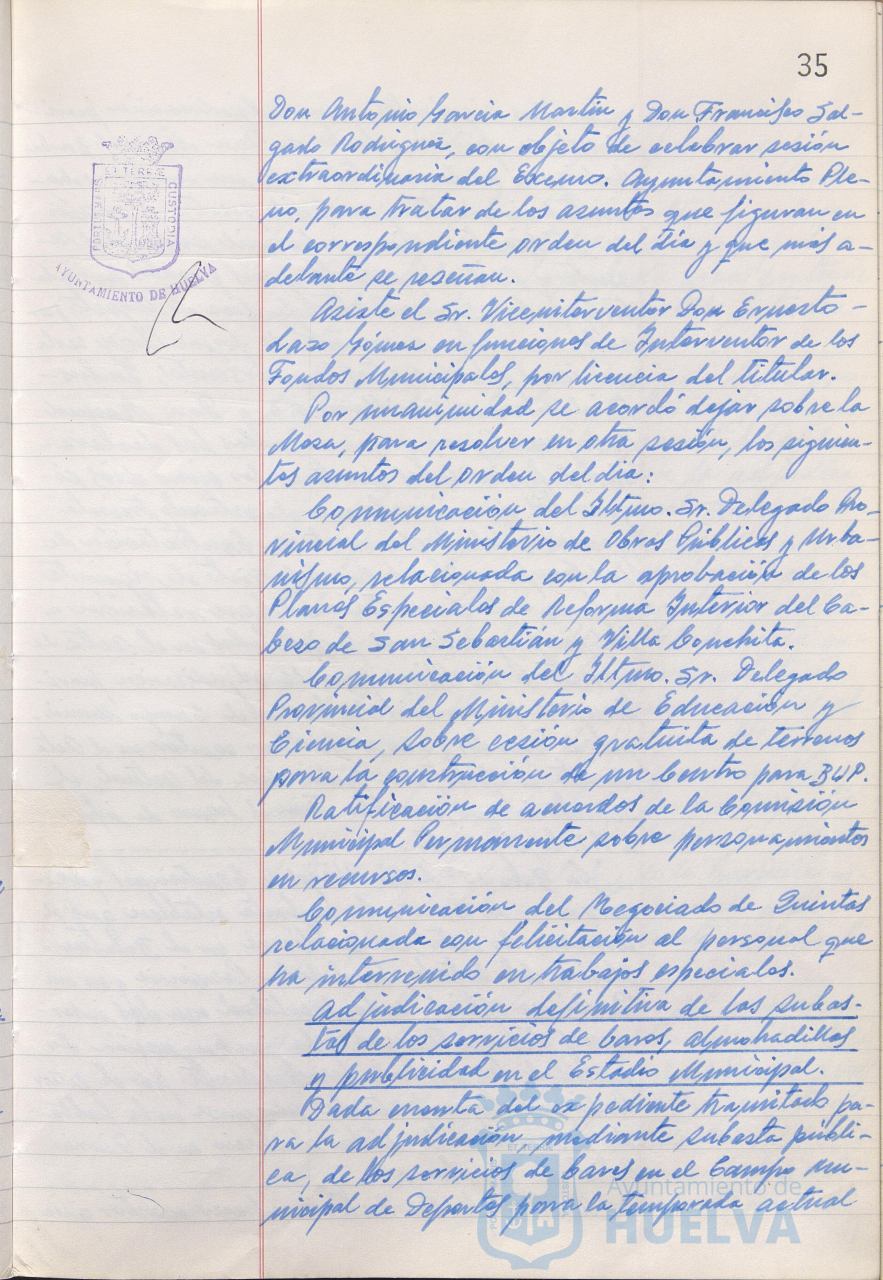 35
Don Antonio García Martín y Don Francisco Sal-
gado Rodríguez, con objeto de celebrar sesión
extraordinaria del Excmo. Ayuntamiento Ple-
no, para tratar de los asuntos que figuran en
el correspondiente orden del día y que más a-
delante se reseñan.
Asiste el Sr. Viceinterventor Don Ernesto
Lazo Gómez en funciones de Interventor de los
Fondos Municipales, por licencia del titular.
Por unanimidad se acordó dejar sobre la
Mesa, para resolver en otra sesión, los siguien-
tes asuntos del orden del día:
Comunicación del Iltmo. Sr. Delegado Pro-
vincial del Ministerio de Obras Públicas y Urba-
nismo, relacionada con la aprobación de los
Planes Especiales de Reforma Interior del Ca-
bezo de San Sebastián y Villa Conchita.
Comunicación del Iltmo. Sr. Delegado
Provincial del Ministerio de Educación y
Ciencia, sobre cesión gratuita de terrenos
para la construcción de un Centro para BUP.
Ratificación de acuerdos de la Comisión
Municipal Permanente sobre personamientos
en recursos.
Comunicación del Negociado de Quintas
relacionada con felicitación al personal que
ha intervenido en trabajos especiales.
Adjudicación definitiva de las subas-
tas de los servicios de bares, almohadillas
y publicidad en el Estadio Municipal.
Dada cuenta del expediente tramitado pa-
ra la adjudicación, mediante subasta públi-
ca, de los servicios de bares en el Campo Mu-
nicipal de Deportes para la temporada actual
PORTUS MARIS
ET TERRÆ
CUSTODIA
AYUNTAMIENTO DE HUELVA
Ayuntamiento de
HUELVA